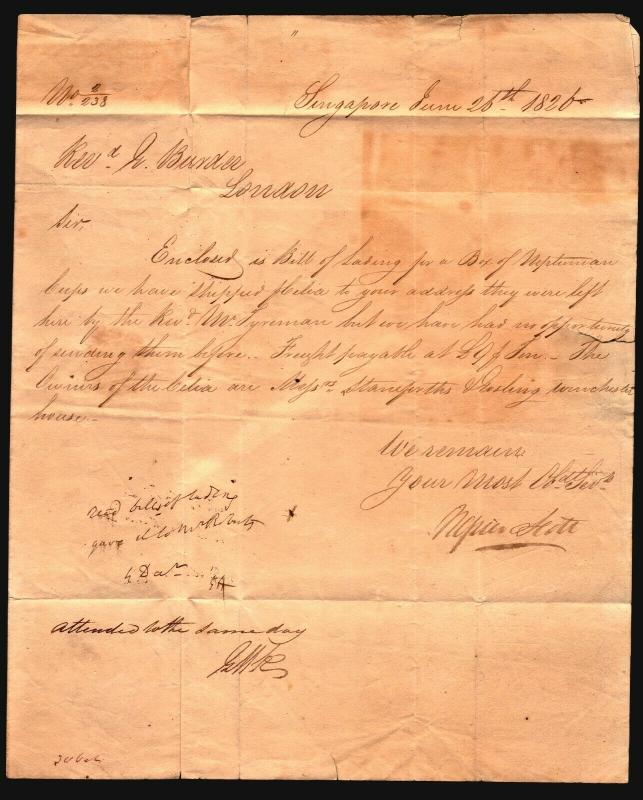 No. 2/238
Singapore June 26th 1826
Revd. G. Burder
London
Sir,
Enclosed is Bill of Lading for a Box of Neptunian
Cups we have shipped p Celia to your address they were left
here by the Revd. Mr. Tyreman but we have had no opportunity
of sending them before. Freight payable at £9 p Ton. The
Owners of the Celia are Messrs Staniforths & Gosling Winchester
house.
We remain
Your Most Obdt. Servts
Napier Scott
recd bill of lading
gave it to Mr
4 Dec
attended to the same day